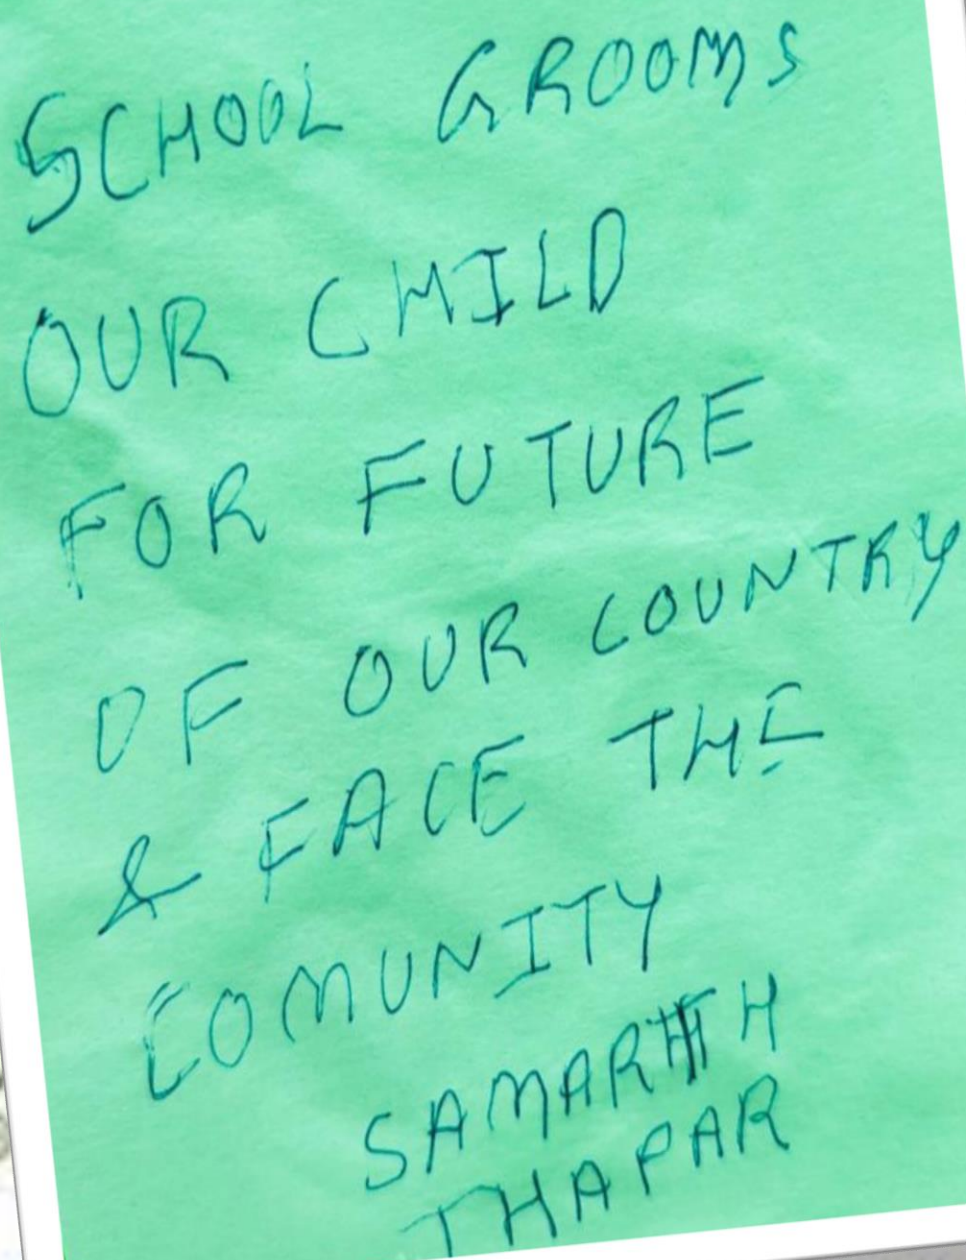 SCHOOL GROOMS
OUR CHILD
FOR FUTURE
OF OUR COUNTRY
& FACE THE
COMUNITY
SAMARTH
THAPAR